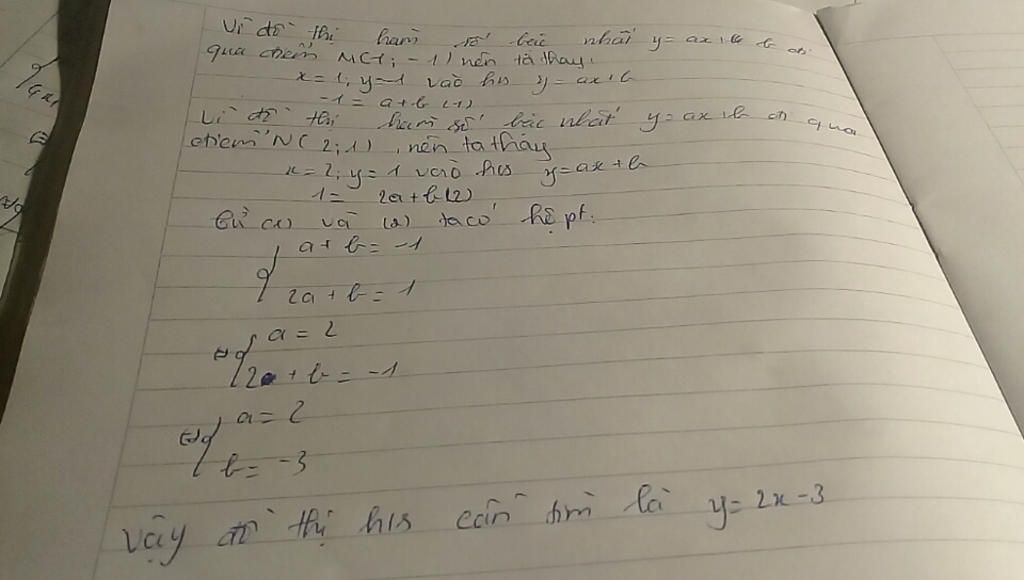 Vì đồ thị hàm số bậc nhất y = ax + b đi
qua điểm M(1; -1) nên ta thay:
x = 1; y = -1 vào h/s y = ax + b
-1 = a + b (1)
Vì đồ thị hàm số bậc nhất y = ax + b đi qua
điểm N(2; 1), nên ta thay
x = 2; y = 1 vào h/s y = ax + b
1 = 2a + b (2)
Từ (1) và (2) ta có hệ pt:
{ a + b = -1
2a + b = 1
⇔ { a = 2
2 + b = -1
⇔ { a = 2
b = -3
Vậy đồ thị h/s cần tìm là y = 2x - 3